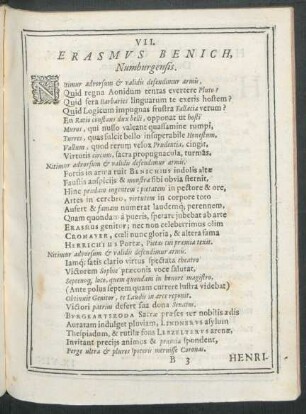 VII.
ERASMVS BENICH,
Numburgensis.
Nitimur adversum & validis defendimur armis,
Quid regna Aonidum tentas evertere Pluto?
Quid fera Barbaries linguarum te exeris hostem?
Quid Logicum impugnas frustra Fallacia verum?
En Ratio constans dux belli, opponat ut hosti
Muros, qui nullo valeant quassamine rumpi,
Turres, quas fulcit bello insuperabile Honestum,
Vallum, quod rerum velox Prudentia, cingit,
Virtutis turmas.
Nitimur adversum & validis defendimur armis.
Fortis in arma ruit BENICHIUS indolis altæ
Faustis auspiciis & monstra sibi obvia sternit,
Hinc prædam ingentem: pietatem in pectore & ore,
Artes in cerebro, virtutem in corpore toto
Aufert & famam numerat laudemq; perennem,
Quam quondam à pueris, sperare jubebat ab arte
ERASMUS genitor; nec non celeberrimus olim
CROMAYER, cœli nunc gloria, & altera fama
HERRICHIUS Portæ,
Nitimur adversum & validis defendimur armis.
Jamq; satis clario virtus spectata theatro
Victorem Sophiæ præconis voce salutat,
Septenoq; loco, quem quondam in honore magistro,
(Ante polus septem quam currere lustra videbat)
Obtinuit Genitor, te Laudis in arce reponit.
Victori patrim deferre sua dona Senatus,
Auratam indulget pluviam, LINDNERUS asylum
Thespiadum, & rutilæ fons LETZELTERUS arenæ,
Invitant precijs animos & præmia spondent,
Perge ultra & plures spoterù meruisse Coronas.
B 3
HENRI-